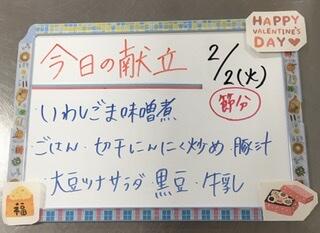 HAPPY
VALENTINE'S
DAY
今日の献立
2/2(火)
節分
・いわしごま味噌煮
・ごはん・切干にんにく炒め・豚汁
・大豆ツナサラダ・黒豆・牛乳
福